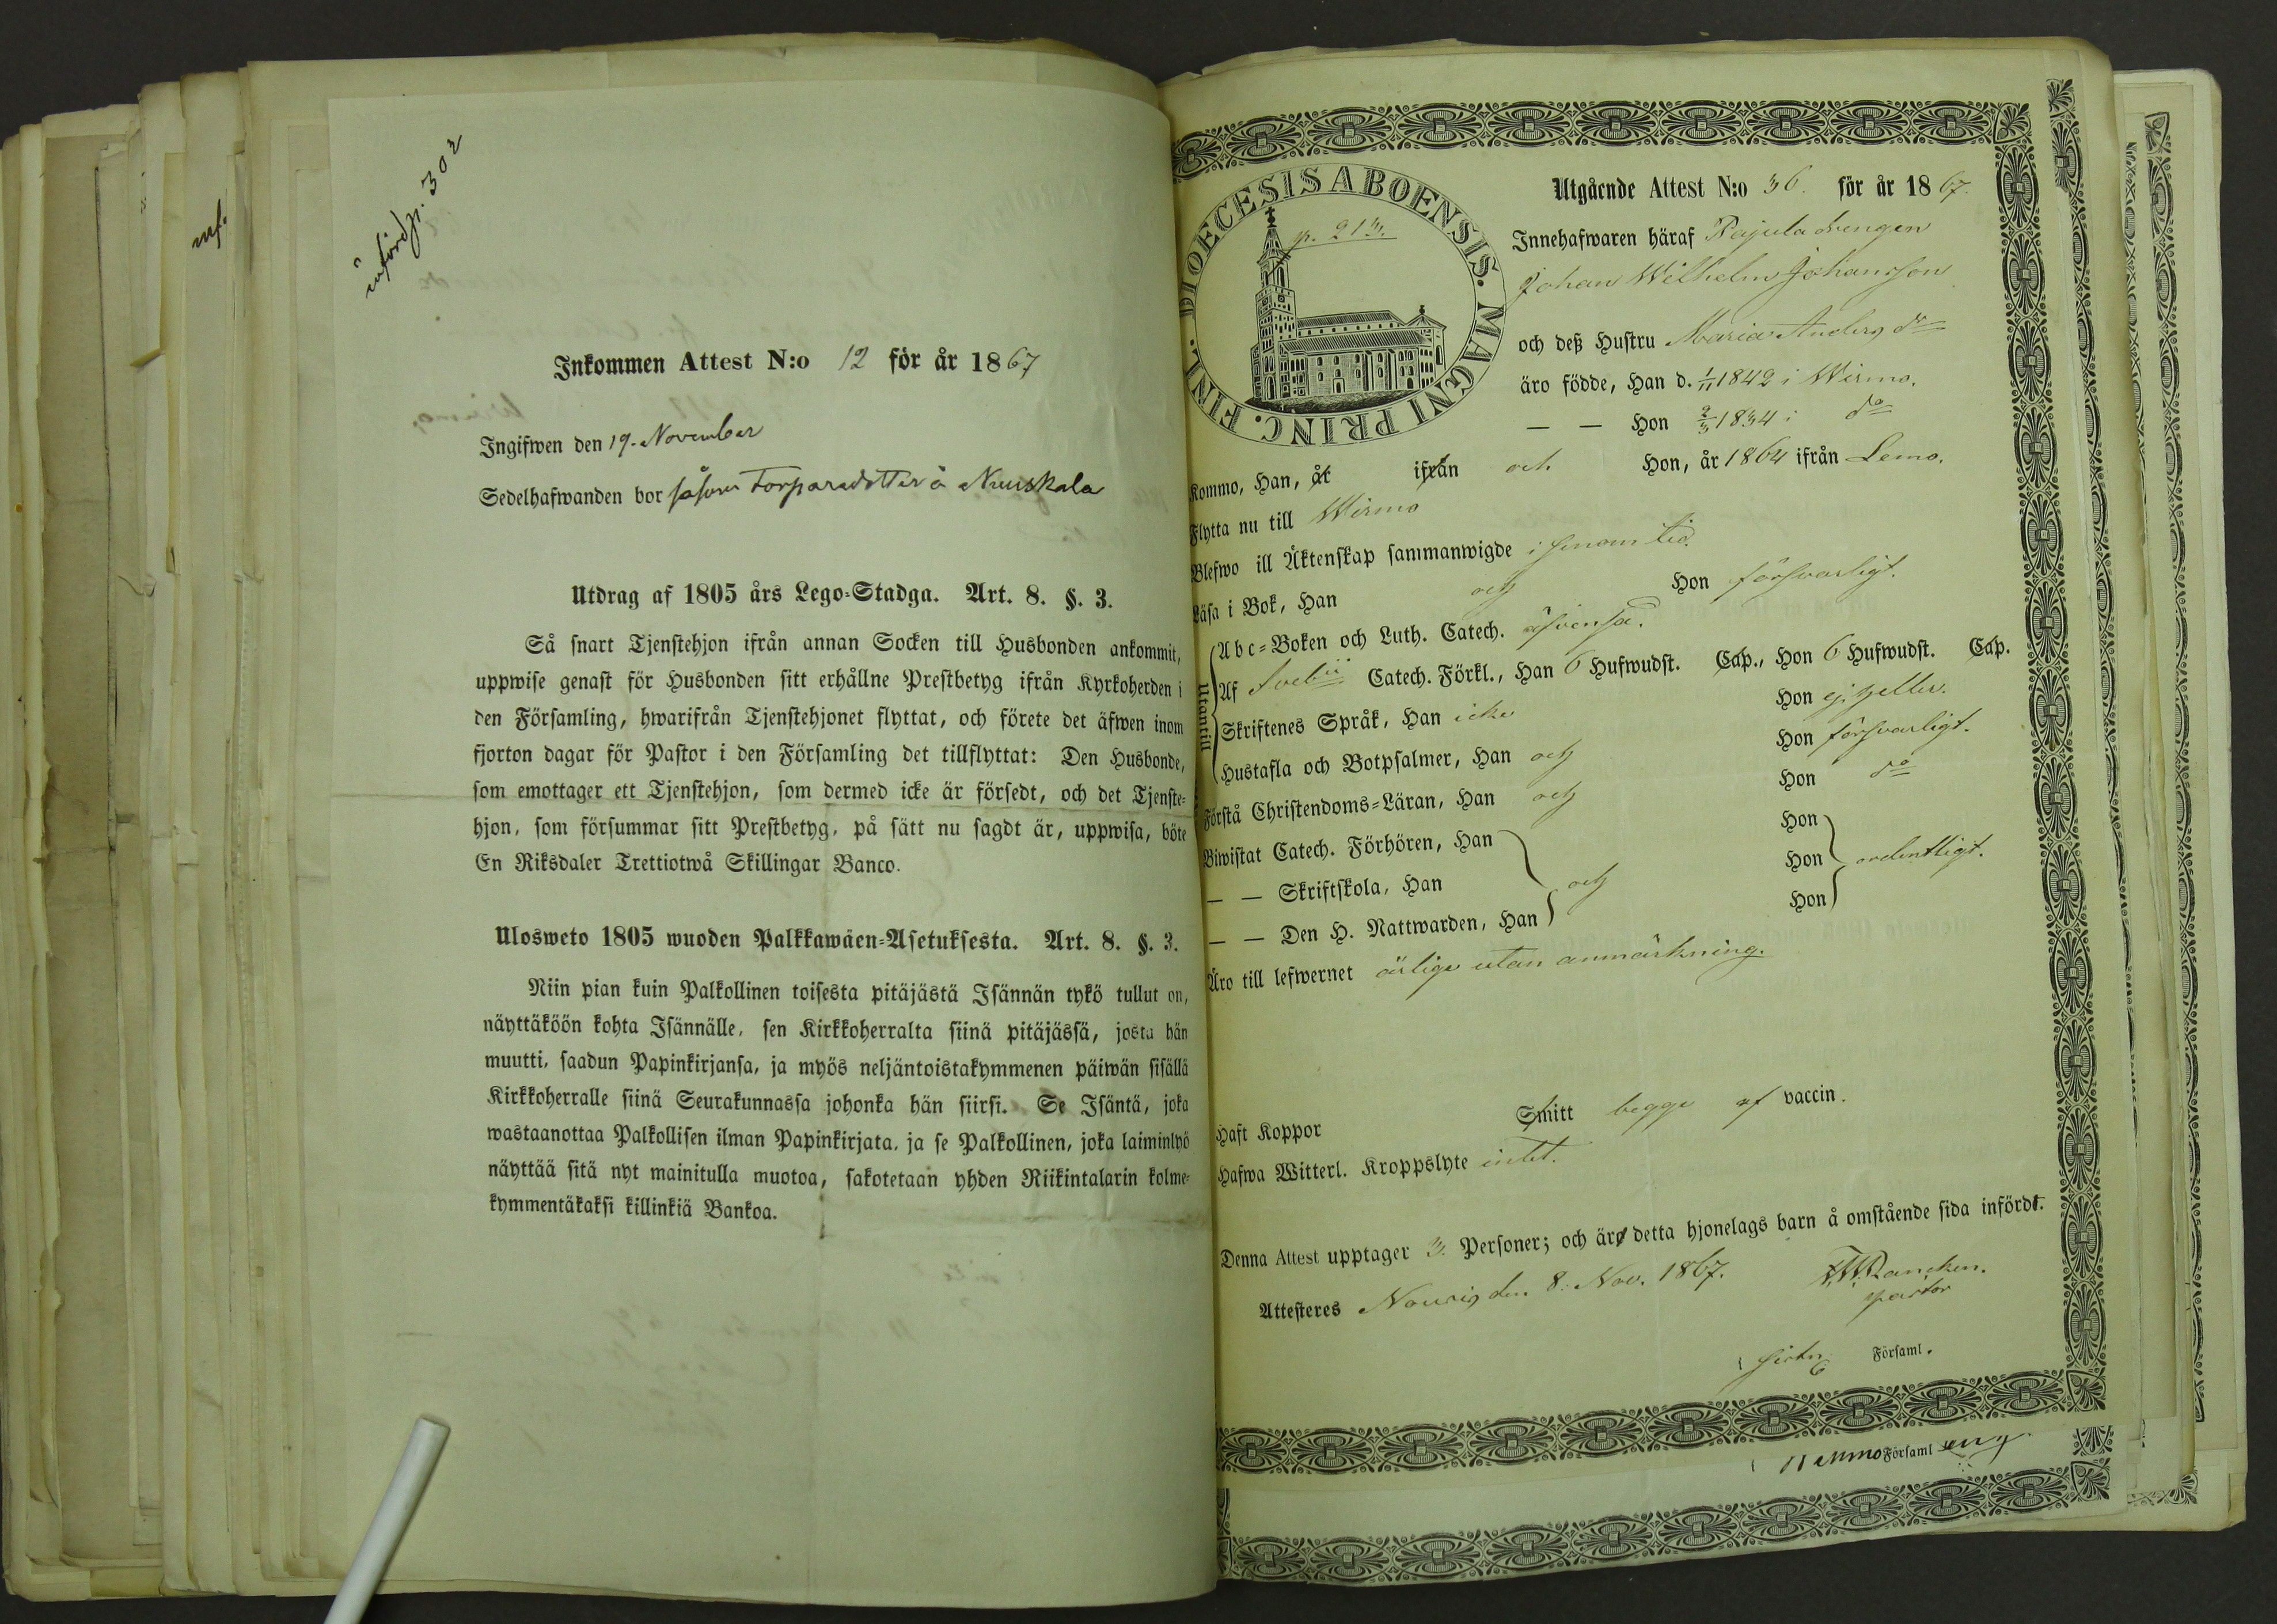 införd p. 302
inf.
Inkommen Attest N:o 12 för år 1867
Ingifwen den 19. November
Sedelhafwanden bor såsom Torparedotter å Nuuskala
Utdrag af 1805 års Lego-Stadga. Art. 8. §. 3.
Så snart Tjenstehjon ifrån annan Socken till Husbonden ankommit,
uppwise genast för Husbonden sitt erhållne Prestbetyg ifrån Kyrkoherden i
den Församling, hwarifrån Tjenstehjonet flyttat, och förete det äfwen inom
fjorton dagar för Pastor i den Församling det tillflyttat: Den Husbonde,
som emottager ett Tjenstehjon, som dermed icke är försedt, och det Tjenste-
hjon, som försummar sitt Prestbetyg, på sätt nu sagdt är, uppwisa, böte
En Riksdaler Trettiotwå Skillingar Banco.
Ulosweto 1805 wuoden Palkkawäen-Asetuksesta. Art. 8. §. 3.
Niin pian kuin Palkollinen toisesta pitäjästä Isännän tykö tullut on,
näyttäköön kohta Isännälle, sen Kirkkoherralta siinä pitäjässä, josta hän
muutti, saadun Papinkirjansa, ja myös neljäntoistakymmenen päiwän sisällä
Kirkkoherralle siinä Seurakunnassa johonka hän siirsi. Se Isäntä, joka
wastaanottaa Palkollisen ilman Papinkirjata, ja se Palkollinen, joka laiminlyö
näyttää sitä nyt mainitulla muotoa, sakotetaan yhden Riikintalarin kolme-
kymmentäkaksi killinkiä Bankoa.
DIOECESIS ABOENSIS. MAGNI PRINC. FINL.
p. 213.
Utgående Attest N:o 36. för år 1867.
Innehafwaren häraf Pajula drengen
Johan Wilhelm Johansson
och deß Hustru Maria Anders dr
äro födde, Han d. 1/11 1842 i Wirmo.
— — Hon 2/3 1834 i do
Kommo, Han, år ifrån och Hon, år 1864 ifrån Lemo.
Flytta nu till Wirmo
Blefwo ill Äktenskap sammanwigde i sinom tid.
Läsa i Bok, Han och Hon försvarligt.
Utantill
Abc-Boken och Luth. Catech. äfvenså.
Af Svebii Catech. Förkl., Han 6 Hufwudst. Cap., Hon 6 Hufwudst. Cap.
Skriftenes Språk, Han icke Hon ej heller.
Hustafla och Botpsalmer, Han och Hon försvarligt.
Förstå Christendoms-Läran, Han och Hon do
Biwistat Catech. Förhören, Han Hon
— — Skriftskola, Han och Hon ordentligt.
— — Den H. Nattwarden, Han Hon
Äro till lefwernet ärlige utan anmärkning.
Haft Koppor Smitt begge af vaccin.
Hafwa Witterl. Kroppslyte intet.
Denna Attest upptager 3. Personer; och äro detta hjonelags barn å omstående sida infördt.
Attesteres Nousis den 8. Nov. 1867.
pastor
Församl.
Församl